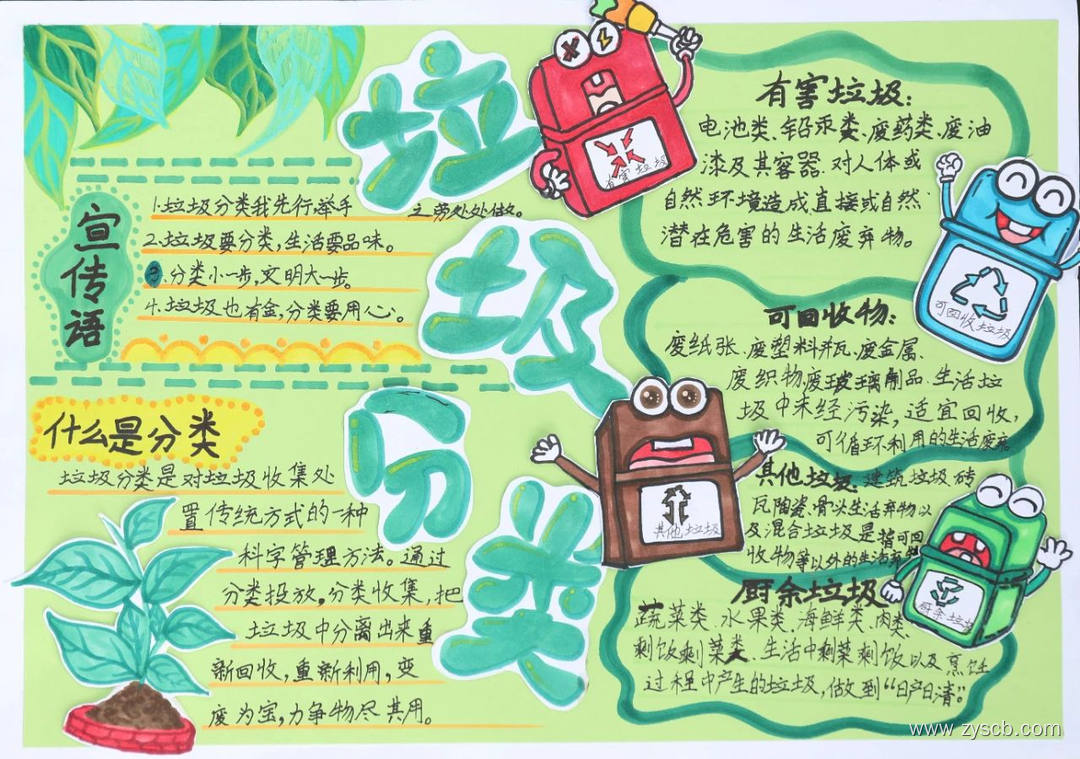 垃圾分类
宣传语
1.垃圾分类我先行,举手之劳处处做。
2.垃圾要分类,生活要品味。
3.分类小一步,文明大一步。
4.垃圾也有金,分类要用心。
什么是分类
垃圾分类是对垃圾收集处
置传统方式的一种
科学管理方法。通过
分类投放。分类收集,把
垃圾中分离出来重
新回收,重新利用,变
废为宝,力争物尽其用。
有害垃圾
有害垃圾:
电池类、铅汞类、废药类、废油
漆及其容器.对人体或
自然环境造成直接或自然
潜在危害的生活废弃物。
可回收垃圾
可回收物:
废纸张、废塑料瓶、废金属、
废织物废玻璃制品.生活垃
圾中未经污染,适宜回收,
可循环利用的生活废弃
其他垃圾
其他垃圾.建筑垃圾砖
瓦陶瓷.骨以生活弃物以
及混合垃圾是指可回
收物等以外的生活弃物
厨余垃圾
厨余垃圾
蔬菜类、水果类、海鲜类、肉类、
剩饭剩菜类、生活中剩菜剩饭以及烹饪
过程中产生的垃圾,做到“日产日清”。
www.zyscb.com